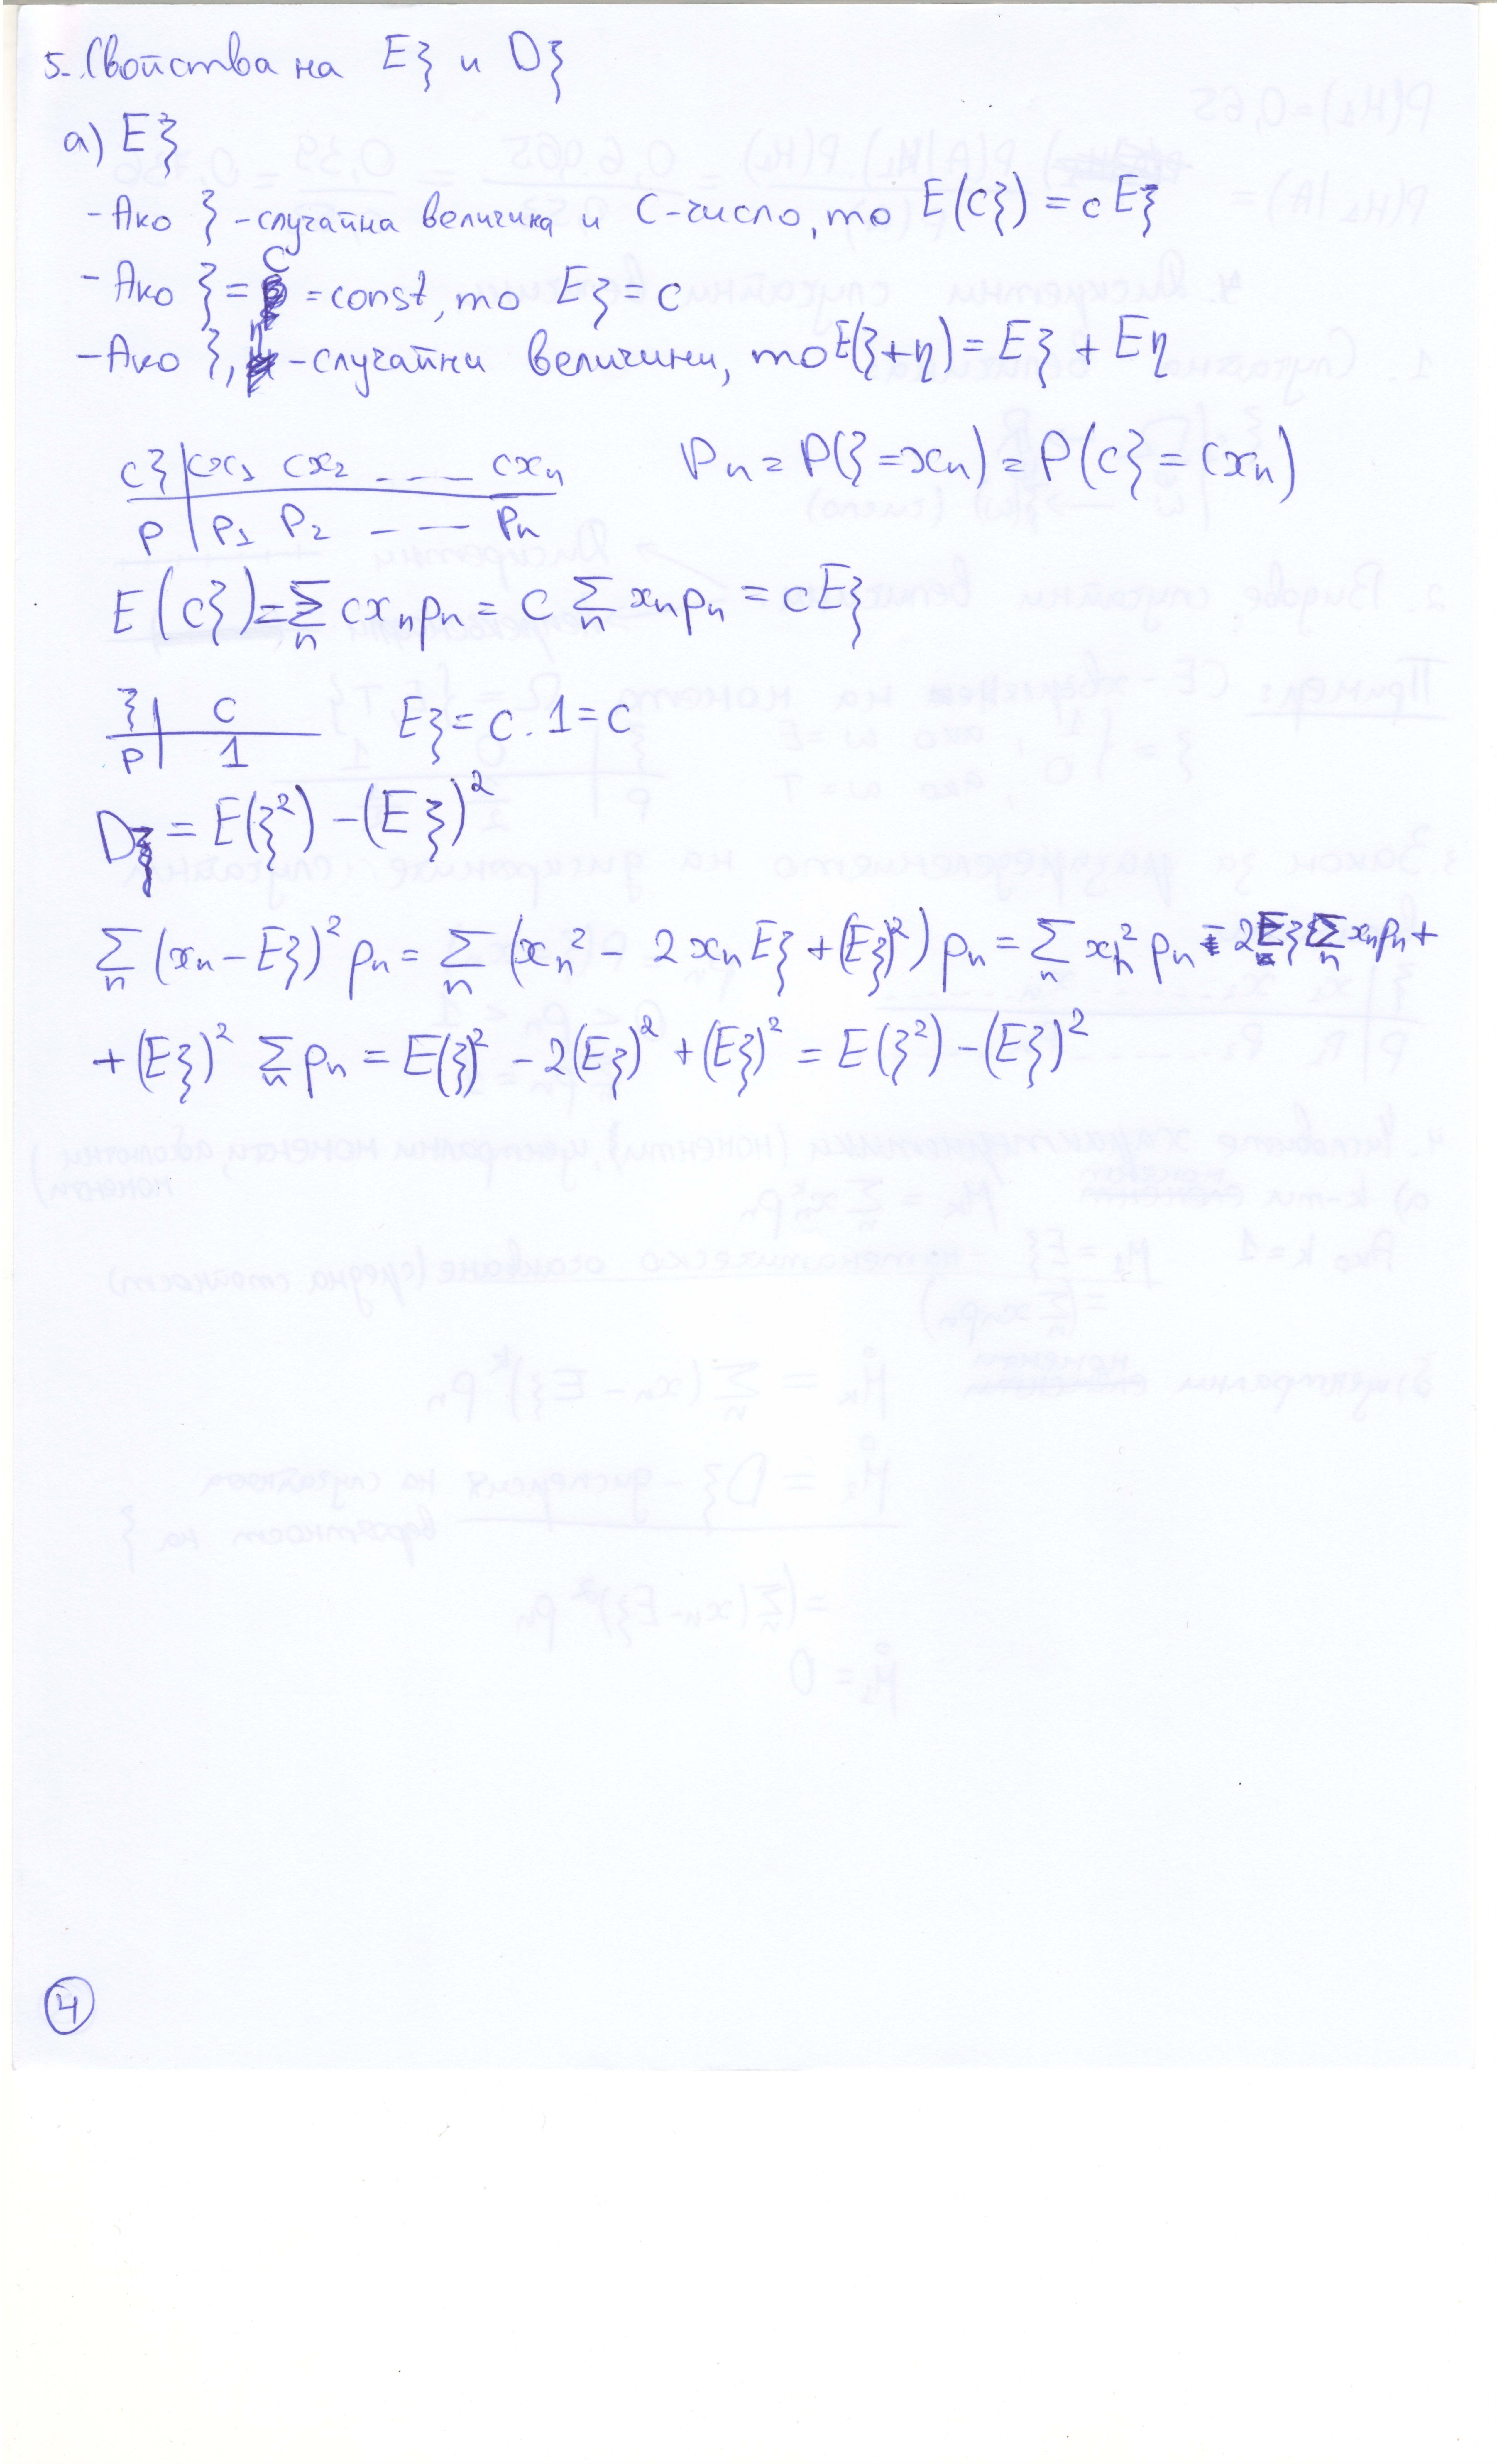 5. Свойства на Eξ и Dξ
а) Eξ
- Ако ξ - случайна величина и C - число, то E(cξ) = cEξ
- Ако ξ = c = const, то Eξ = c
- Ако ξ, η - случайни величини, то E(ξ+η) = Eξ + Eη
cξ | cx₁ cx₂ ---- cxₙ   pₙ = P(ξ = xₙ) = P(cξ = cxₙ)
p | p₁ p₂ ---- pₙ
E(cξ) = ∑ₙ cxₙpₙ = c ∑ₙ xₙpₙ = cEξ
ξ | c   Eξ = c . 1 = c
p | 1
Dξ = E(ξ²) - (Eξ)²
∑ₙ (xₙ - Eξ)² pₙ = ∑ₙ (xₙ² - 2xₙEξ + (Eξ)²) pₙ = ∑ₙ xₙ² pₙ - 2Eξ ∑ₙ xₙpₙ +
+ (Eξ)² ∑ₙ pₙ = E(ξ)² - 2(Eξ)² + (Eξ)² = E(ξ²) - (Eξ)²
4